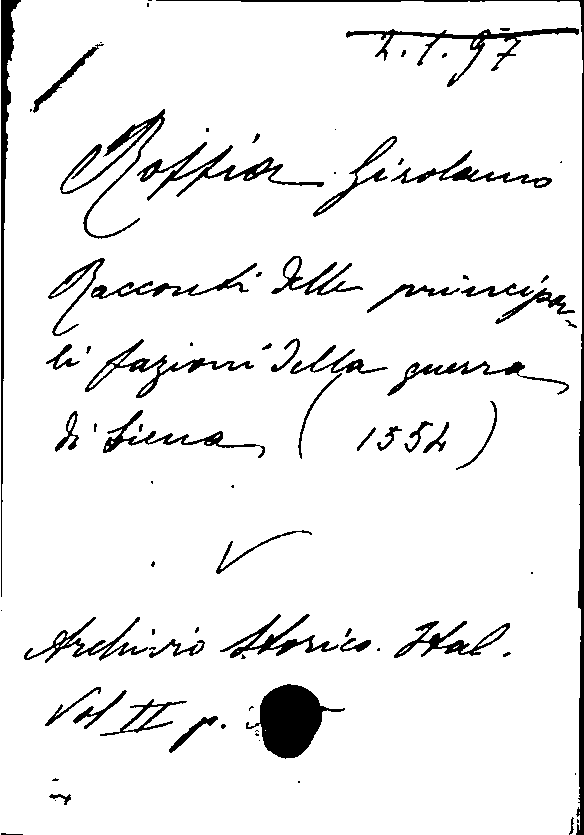 2.1.97
Roffia Girolamo
Racconti delle principa-
li fazioni della guerra
di Siena, (1554)
Archivio Storico. Ital.
Vol II p.